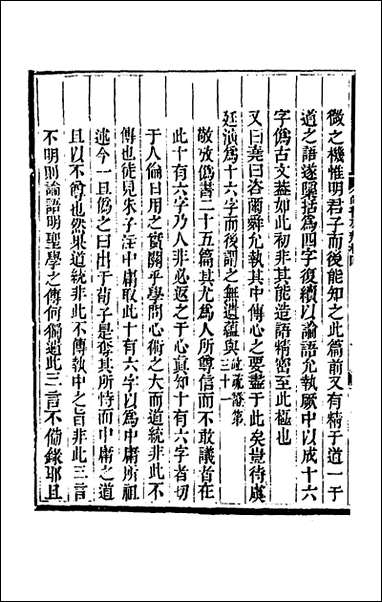 微之機惟明君子而後能知之此篇前又有精于道一于
道之語遂隱括爲四字復續以論語允執厥中以成十六
字僞古文蓋如此初非其能造語精密至此極也
又曰堯曰咨爾舜允執其中傳心之要盡于此矣豈待虞
廷演爲十六字而後謂之無遺蘊與疏證第三十一
敬攷僞書二十五篇其尤爲人所尊信而不敢議者在
此十有六字乃人非必返之于心真知十有六字者切
于人倫日用之實關乎學問心術之大而道統非此不
傳也徒見朱子注中庸取此十有六字以爲中庸所祖
述今一旦僞之曰出于荀子是奪其所恃而中庸之道
且以不尊也然果道統非此不傳執中之旨非此三言
不明則論語明聖學之傳何獨遺此三言不備錄耶且